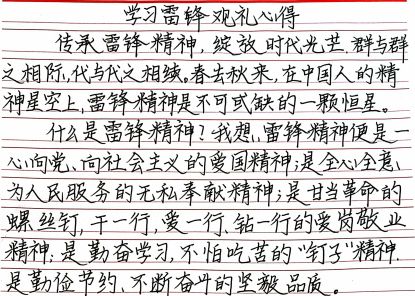 学习雷锋观礼心得
传承雷锋精神,绽放时代光芒,群与群
之相际,代与代之相续。春去秋来,在中国人的精
神星空上,雷锋精神是不可或缺的一颗恒星。
什么是雷锋精神?我想,雷锋精神便是一
心向党、向社会主义的爱国精神;是全心全意
为人民服务的无私奉献精神;是甘当革命的
螺丝钉,干一行,爱一行、钻一行的爱岗敬业
精神;是勤奋学习,不怕吃苦的“钉子”精神.
是勤俭节约、不断奋斗的坚毅品质。